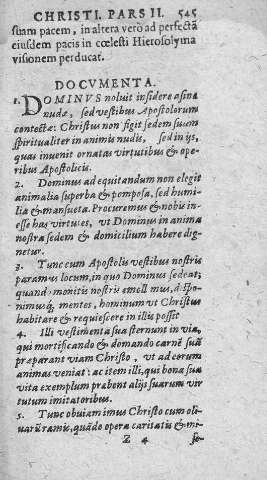 CHRISTI. PARS II. 545
suam pacem, in altera verò ad perfectã
eiusdem pacis in cœlesti Hierosolyma
visionem perducat.
DOCVMENTA.
1. DOMINVS noluit insidere asinæ
nudæ, sed vestibus Apostolorum
contectæ: Christus non figit sedem suam
spiritualiter in animis nudis, sed in ijs,
quas inuenit ornatas virtutibus & ope-
ribus Apostolicis.
2. Dominus ad equitandum non elegit
animalia superba & pomposa, sed humi-
lia & mansueta. Procuremus & nobis in-
esse has virtutes, vt Dominus in anima
nostra sedem & domicilium habere dig-
netur.
3. Tunc eum Apostolis vestibus nostris
paramus locum, in quo Dominus sedeat;
quando monitis nostris emolli mus, & dispo-
nimusq; mentes, hominum vt Christus
habitare & requiescere in illis possit
4. Illi vestimenta sua sternunt in via,
qui mortificando & domando carnẽ suã
præparant viam Christo, vt ad eorum
animas veniat: ac item illi, qui bona sua
vita exemplum præbent alijs suarum vir
tutum imitatoribus.
5. Tunc obuiam imus Christo cum oli-
uarũ ramis, quãdo opera caritatis & mi-
Z 4 se-